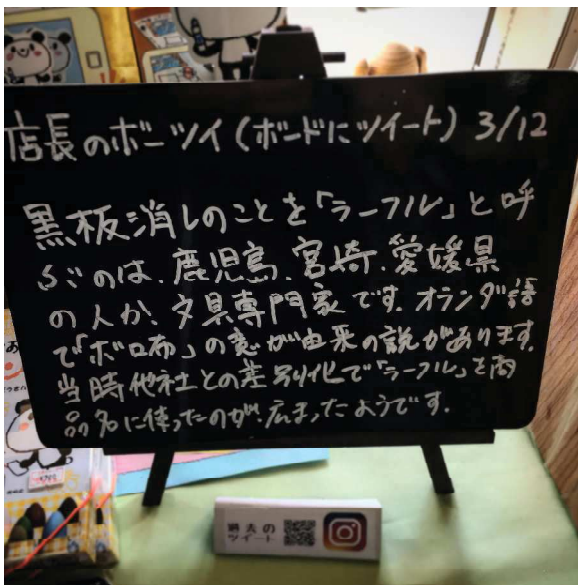 店長のボーツイ(ボードにツイート) 3/12
黒板消しのことを「ラーフル」と呼
ぶのは、鹿児島、宮崎、愛媛県
の人か、文具専門家です。オランダ語
で「ボロ布」の意が由来の説があります。
当時他社との差別化で「ラーフル」を商
品名に使ったのが、広まったようです。
過去の
ツイート